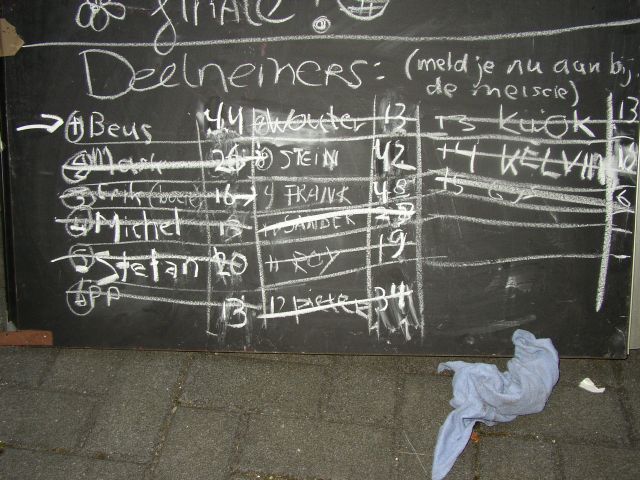 finale!
Deelnemers: (meld je nu aan bij
de meissie)
1 Beus 44 Wouter 13 13 KUOK 13
2 Mark 26 8 STEIN 42 14 KELVIN 16
3 Erik 16 9 FRANK 48 15 6
4 Michel 13 SANDER
5 Stefan 20 11 ROY 19
6 PP 13 12 pieter 34